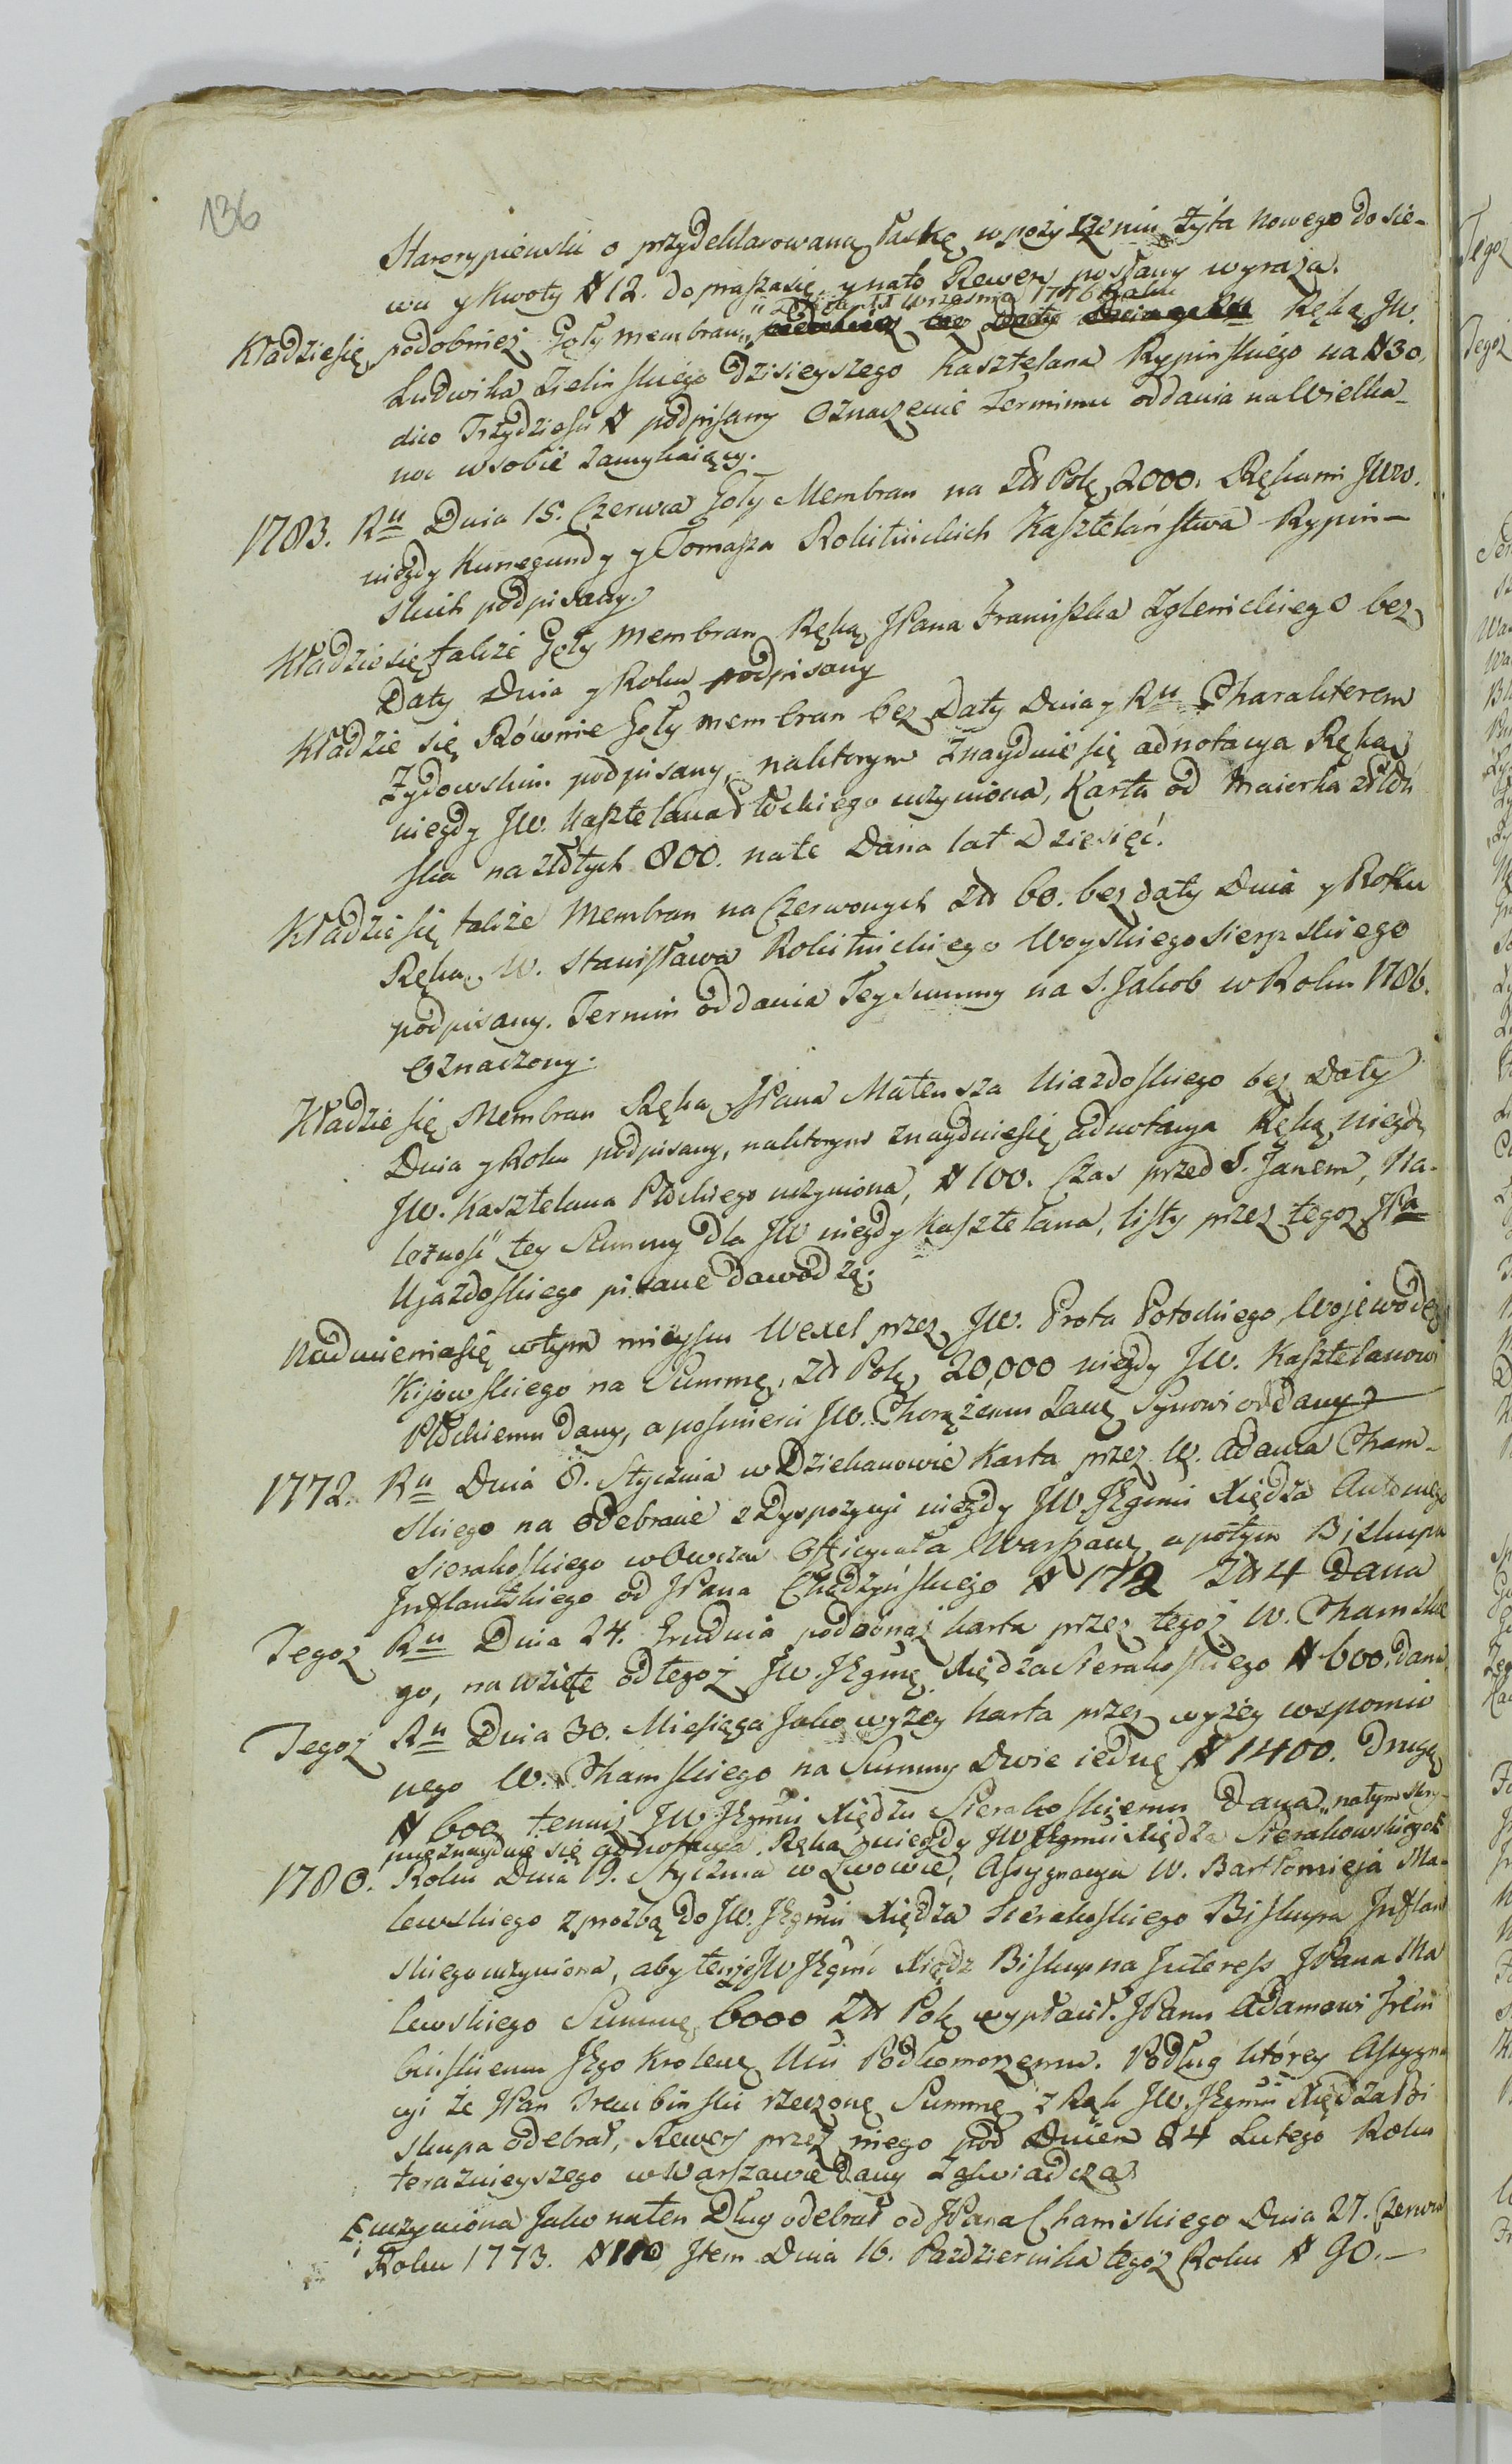 136
Starorypiński o przydeklarowaną łaskę w pożyczeniu żyta nowego do sie-
wu y kwoty # 12. dopraszasię, y nato Rewers posłany wyraża.
" z Dnia Września 1776 Roku
Kładziesię podobnież Goły membran Ręką JW.
Ludwika Zielinskiego Dzisieyszego Kasztelana Rypinskiego na # 30,
dico Trzydzieści # podpisany Oznaczenie Terminu oddania na Wielka-
noc wsobie zamykaiący.
1783. Ru Dnia 15. Czerwca Goły Membran na Złł Pol: 2000. Rękami JWW.
niegdy Kunegundy y Tomasza Rokitnickich Kasztelaństwa Rypin-
skich podpisany.
Kładziesię także Goły membran Ręką JPana Franciszka Zglenickiego bez
Daty Dnia y Roku podpisany
Kładzie się Równie Goły membran bez Daty Dnia y Ru Charakterem
Zydowskim podpisany, naktorym znayduie się adnotacya Ręką
niegdy JW. Kasztelana Płockiego uczyniona, Karta od Maiorka
ska na złłtych 800. nate Dana lat Dziesięć.
Kładzie się także Membran na Czerwonych Złł 60. bez daty Dnia y Roku
Ręką W. Stanisława Rokitnickiego Woyskiego sierpskiego
podpisany. Termin oddania Tey summy na S. Jakob w Roku 1786.
Oznaczony.
Kładzie się Membran Ręką JPana Mateusza Uiazdoskiego bez Daty
Dnia y Roku podpisany, naktorym znayduiesię adnotacya Ręką niegdy
JW. Kasztelana Płockiego uczyniona, # 100. Czas przed S. Janem, Na-
leżność tey Summy dla JW niegdy Kasztelana, listy przez tegoż JPa
Ujazdoskiego pisane dawodzą.
Nadmieniasię wtym mieyscu Wexel przez JW. Prota Potockiego Wojewodę
Kijowskiego na Summę, Złł Pol: 20,000 niegdy JW. Kasztelanowi
Płockiemu Dany, a pośmierci JW. Chorążemu Zaw: Synowi oddany
1772. Ru Dnia 8. Stycznia w Dziekanowie Karta przez W. Adama Cham-
skiego na odebranie z Dyspozycyi niegdy JW JXgmci Xiędza Antoniego
Sierakoskiego wOwczas Officyała Warszaw: apotym Biskupa
Inflantskiego od JPana Chądzyńskiego # 172 Złł 4 Dana
Tegoż Ru Dnia 24. Grudnia podobnaż karta przez tegoż W. Chamskie
go, na wzięte odtegoż JW. JXgmci Xiędza Sierakoskiego # 600. dana,
Tegoż Ru Dnia 30. Miesiąca Jako wyżey karta przez wyżey wspomnio
nego W. Chamskiego na Summy Dwie iednę # 1400. drugą
# 600 temuż JW JXgmci Xiędzu Sierakoskiemu Dana " natym skry-
pcie znayduie się adnotacya Ręką niegdy JW JXgmci Xiędza Sierakowskiego
1780. Roku Dnia 19. Stycznia w Lwowie, Assygnacya W. Bartłomieja Ma-
lewskiego z prozbą do JW. JXgmci Xiędza Sierakoskiego Biskupa Inflan
skiego uczyniona, aby tenże JW JXgmć Xiądz Biskup na Interess JPana Ma
lewskiego Summę 6000 Złł Pol: wypłacił. JPanu Adamowi Trem
binskiemu JKgo Krolew: Mci Podkomorzemu. Podług którey Assygna
cyi że JPan Trembinski rzeczonę Summę z Rąk JW. JXgmci Xiędza Bi
skupa odebrał, Rewers przez niego pod Dniem 24 Lutego Roku
teraznieyszego w Warszawie Dany Zaświadcza
uczyniona Jako naten Dług odebrał od JPana Chamskiego Dnia 27. Czerwca
Roku 1773. # 110 Item Dnia 16. Pazdziernika tegóż Roku # 90.—